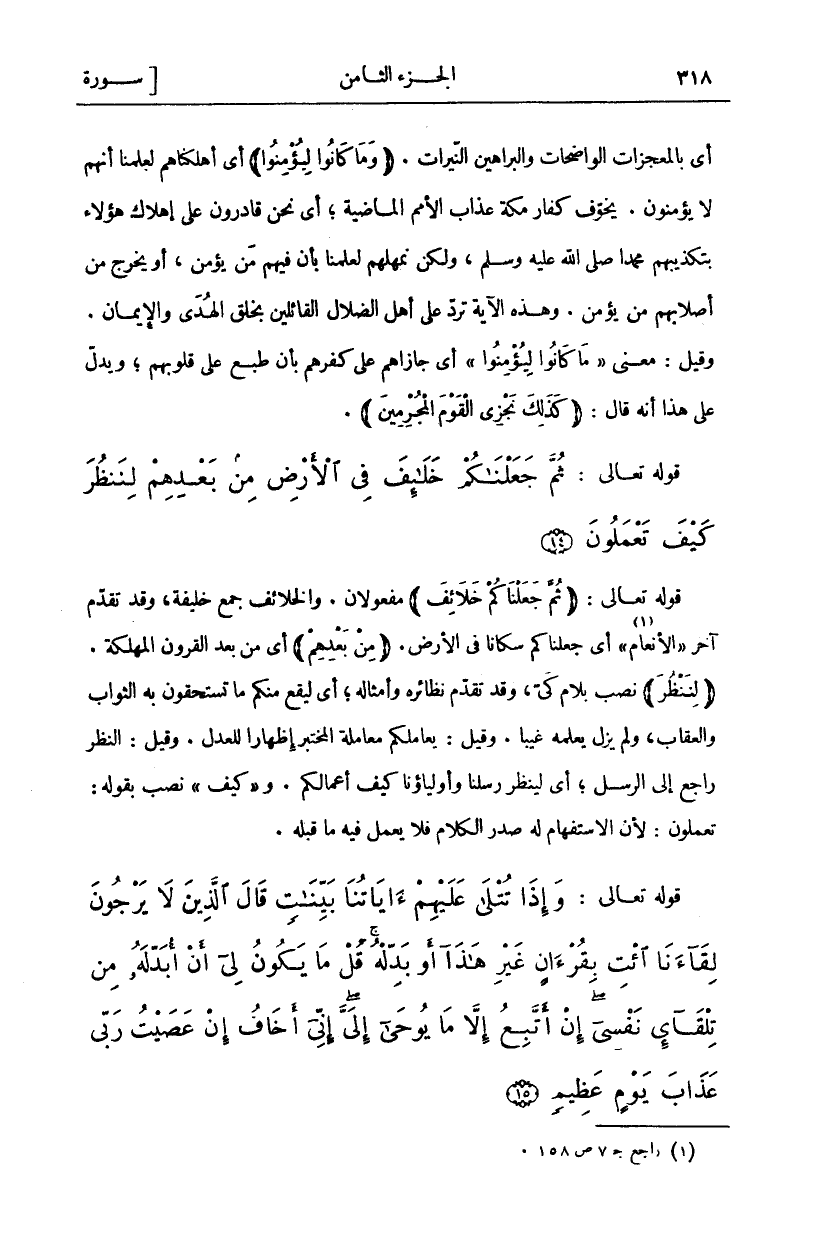 ٣١٨ الجزء الثامن [ ســورة
أى بالمعجزات الواضحات والبراهين النّيرات . ﴿ وَمَا كَانُوا لِيُؤْمِنُوا ﴾ أى أهلكناهم لعلمنا أنهم
لا يؤمنون . يخوّف كفار مكة عذاب الأمم المـاضية ؛ أى نحن قادرون على إهلاك هؤلاء
بتكذيبهم محمدا صلى الله عليه وسـلم ، ولكن نمهلهم لعلمنا بأن فيهم مَن يؤمن ، أو يخرج من
أصلابهم من يؤمن . وهـذه الآية تردّ على أهل الضلال القائلين بخلق الهُدَى والإيمـان .
وقيل : معـنى « مَا كَانُوا لِيُؤْمِنُوا » أى جازاهم على كفرهم بأن طبـع على قلوبهم ؛ ويدلّ
على هذا أنه قال : ﴿ كَذَلِكَ نَجْزِى الْقَوْمَ الْمُجْرِمِينَ ﴾ .
قوله تعـالى : ثُمَّ جَعَلْنَـٰكُمْ خَلَـٰٓئِفَ فِى ٱلْأَرْضِ مِنۢ بَعْـدِهِمْ لِنَنظُرَ
كَيْفَ تَعْمَلُونَ ﴿١٤﴾
قوله تعـالى : ﴿ ثُمَّ جَعَلْنَاكُمْ خَلَائِفَ ﴾ مفعولان . والخلائف جمع خليفة، وقد تقدّم
آخر «الأنعام»(١) أى جعلناكم سكانا فى الأرض. ﴿ مِنْ بَعْدِهِمْ ﴾ أى من بعد القرون المهلكة .
﴿ لِنَنْظُرَ ﴾ نصب بلام كَىْ، وقد تقدّم نظائره وأمثاله ؛ أى ليقع منكم ما تستحقون به الثواب
والعقاب، ولم يزل يعلمه غيبا . وقيل : يعاملكم معاملة المختبر إظهارا للعدل . وقيل : النظر
راجع إلى الرسـل ؛ أى لينظر رسلنا وأولياؤنا كيف أعمالكم . و« كيف » نصب بقوله:
تعملون : لأن الاستفهام له صدر الكلام فلا يعمل فيه ما قبله .
قوله تعـالى : وَإِذَا تُتْلَىٰ عَلَيْهِمْ ءَايَاتُنَا بَيِّنَـٰتٍ قَالَ ٱلَّذِينَ لَا يَرْجُونَ
لِقَآءَنَا ٱئْتِ بِقُرْءَانٍ غَيْرِ هَـٰذَآ أَوْ بَدِّلْهُ ۚ قُلْ مَا يَكُونُ لِىٓ أَنْ أُبَدِّلَهُۥ مِن
تِلْقَـآىِٕ نَفْسِىٓ ۖ إِنْ أَتَّبِـعُ إِلَّا مَا يُوحَىٰٓ إِلَىَّ ۖ إِنِّىٓ أَخَافُ إِنْ عَصَيْتُ رَبِّى
عَذَابَ يَوْمٍ عَظِيمٍ ﴿١٥﴾
(١) راجع جـ ٧ ص ١٥٨ .